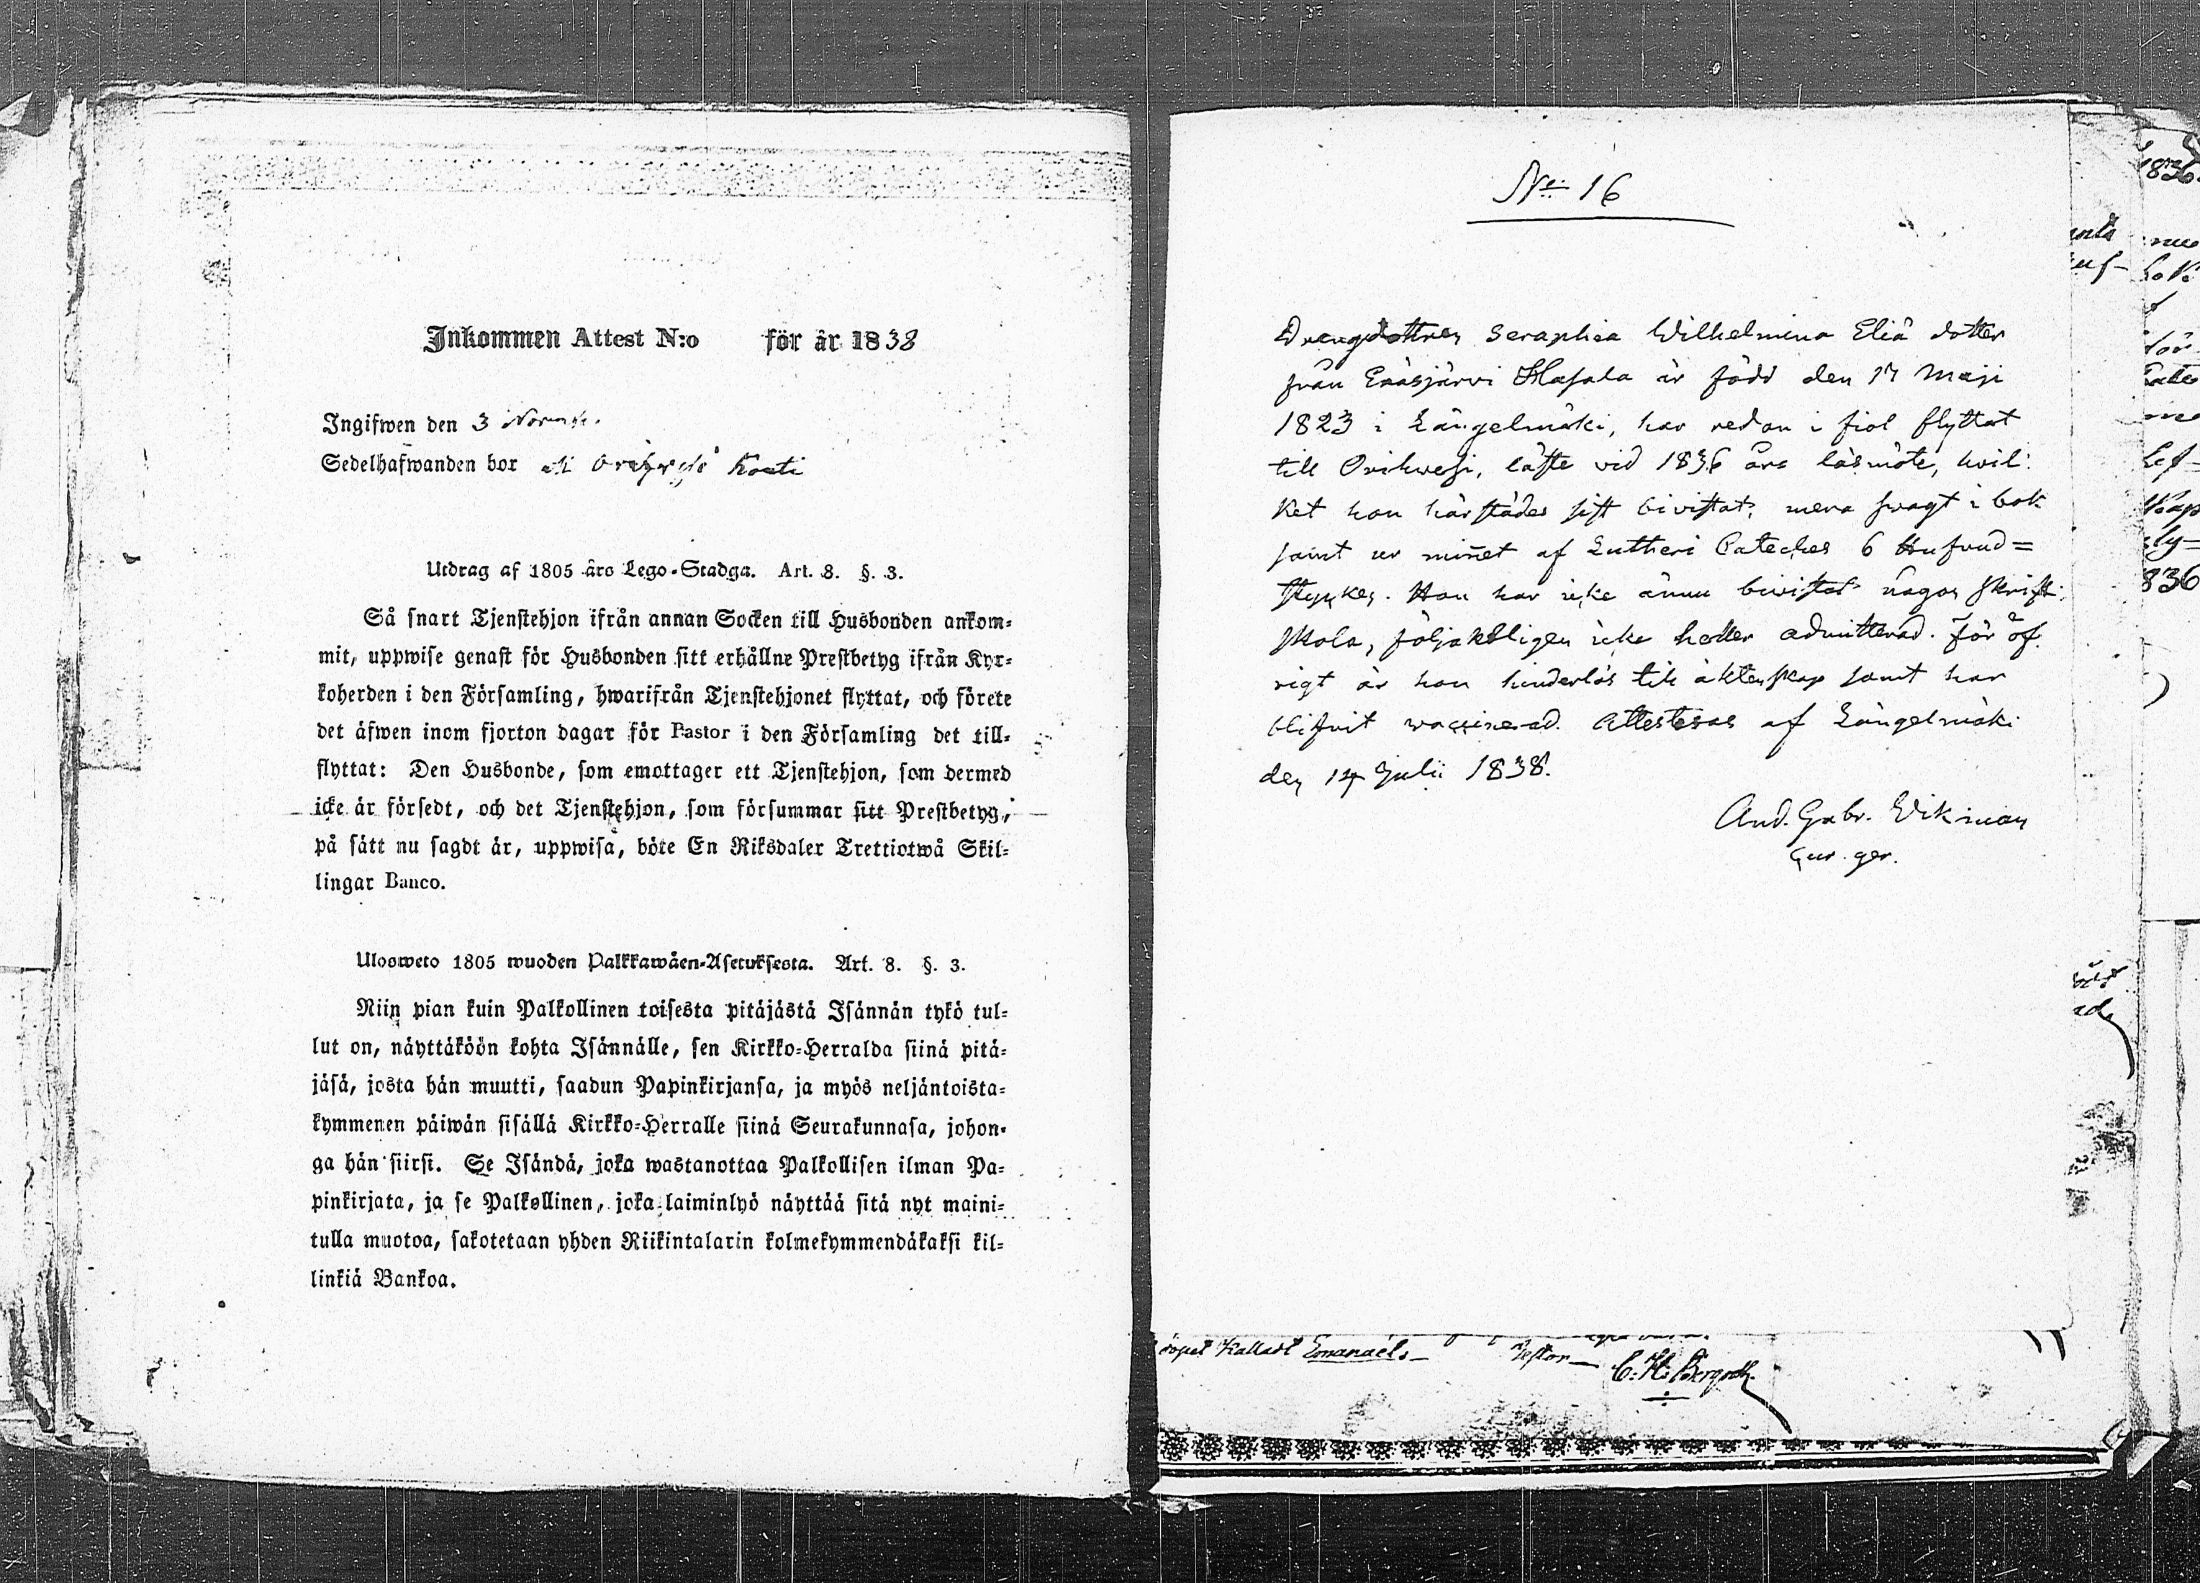 Inkommen Attest N:o för år 1838
Ingifwen den 3 Novemb.
Sedelhafwanden bor
Utdrag af 1805 års Lego-Stadga. Art. 8. §. 3.
Så snart Tjenstehjon ifrån annan Socken till Husbonden ankom-
mit, uppwise genast för Husbonden sitt erhållne Prestbetyg ifrån Kyr-
koherden i den Församling, hwarifrån Tjenstehjonet flyttat, och förete
det äfwen inom fjorton dagar för Pastor i den Församling det till-
flyttat: Den Husbonde, som emottager ett Tjenstehjon, som dermed
icke är försedt, och det Tjenstehjon, som försummar sitt Prestbetyg,
på sätt nu sagdt är, uppwisa, böte En Riksdaler Trettiotwå Skil-
lingar Banco.
Ulosweto 1805 wuoden Palkkawäen-Asetuksesta. Art. 8. §. 3.
Niin pian kuin Palkollinen toisesta pitäjästä Isännän tykö tul-
lut on, näyttäköön kohta Isännälle, sen Kirkko-Herralda siinä pitä-
jäsä, josta hän muutti, saadun Papinkirjansa, ja myös neljäntoista-
kymmenen päiwän sisällä Kirkko-Herralle siinä Seurakunnasa, johon-
ga hän siirsi. Se Isändä, joka wastanottaa Palkollisen ilman Pa-
pinkirjata, ja se Palkollinen, joka laiminlyö näyttää sitä nyt maini-
tulla muotoa, sakotetaan yhden Riikintalarin kolmekymmendäkaksi kil-
linkiä Bankoa.
No 16
Drengdottren Seraphia Wilhelmina Eliä dotter
från Eräsjärvi Hasala är född den 17 Maji
1823 i Längelmäki, har redan i fiol flyttat
till Orihwesi, läste vid 1836 års läsmöte, hvil-
ket hon härstädes sist bivistat, mera swagt i bok
samt ur minnet af Lutheri Cateches 6 Hufvud=
stycken. Hon har icke ännu bivistat någon skrift-
skola, följaktligen icke heller admitterad. För öf-
rigt är hon hinderlös till äktenskap samt har
blifvit waccinerad. Attesteras af Längelmäki
den 14 Julii 1838.
And. Gabr. Wikman
Cur. ger.
Kalladt Emanaels
C. H. Bergroth